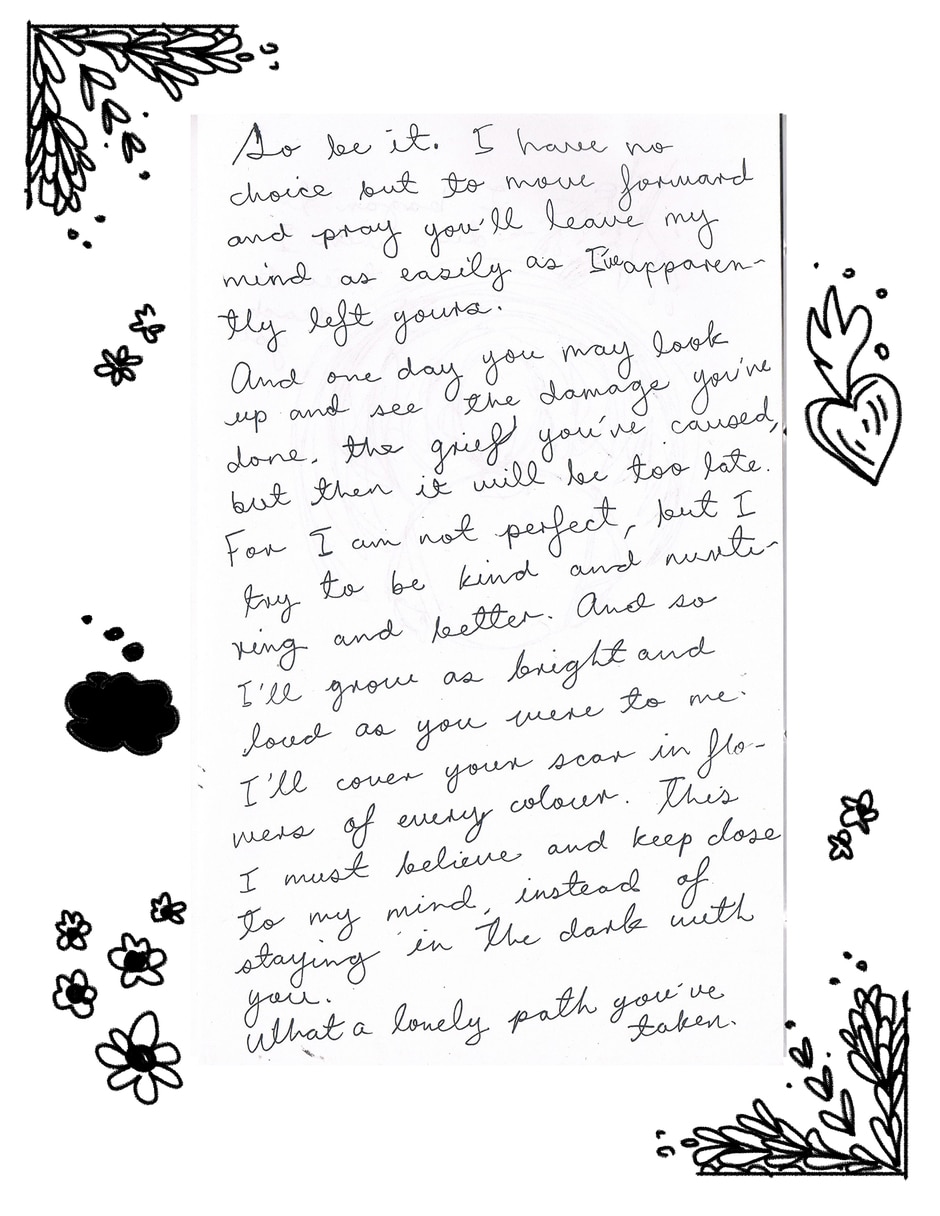 So be it. I have no
choice but to move forward
and pray you'll leave my
mind as easily as I've apparen-
tly left yours.
And one day you may look
up and see the damage you've
done. the grief you've caused,
but then it will be too late.
For I am not perfect, but I
try to be kind and nurtu-
ring and better. And so
I'll grow as bright and
loud as you were to me.
I'll cover your scar in flo-
wers of every colour. This
I must believe and keep close
to my mind, instead of
staying in the dark with
you.
What a lonely path you've
taken.